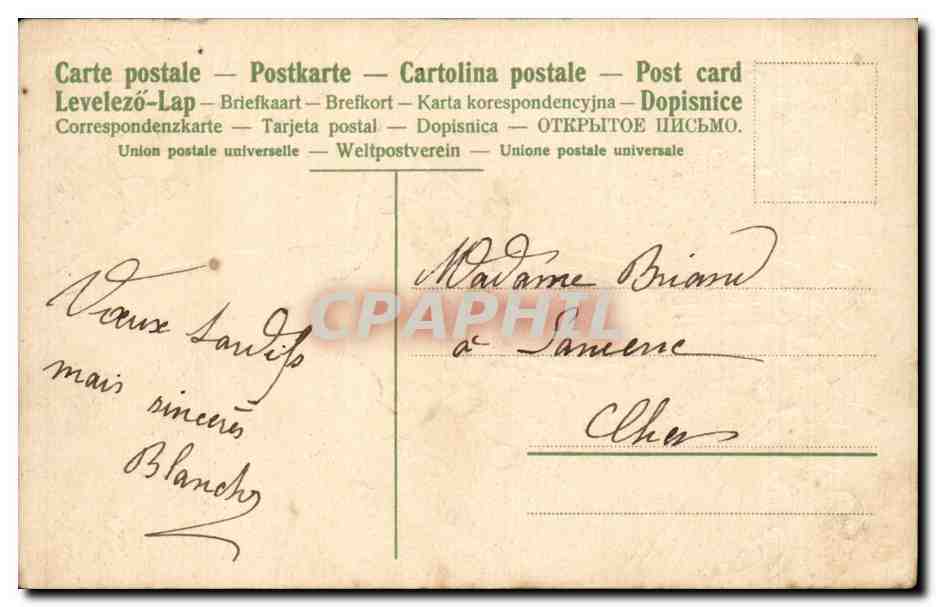 Carte postale — Postkarte — Cartolina postale — Post card
Levelező-Lap — Briefkaart — Brefkort — Karta korespondencyjna — Dopisnice
Correspondenzkarte — Tarjeta postal — Dopisnica — ОТКРЫТОЕ ПИСЬМО.
Union postale universelle — Weltpostverein — Unione postale universale
Vœux tardifs
mais sincères
Blanche
Madame Briand
à Sancerre
Cher
CPAPHIL